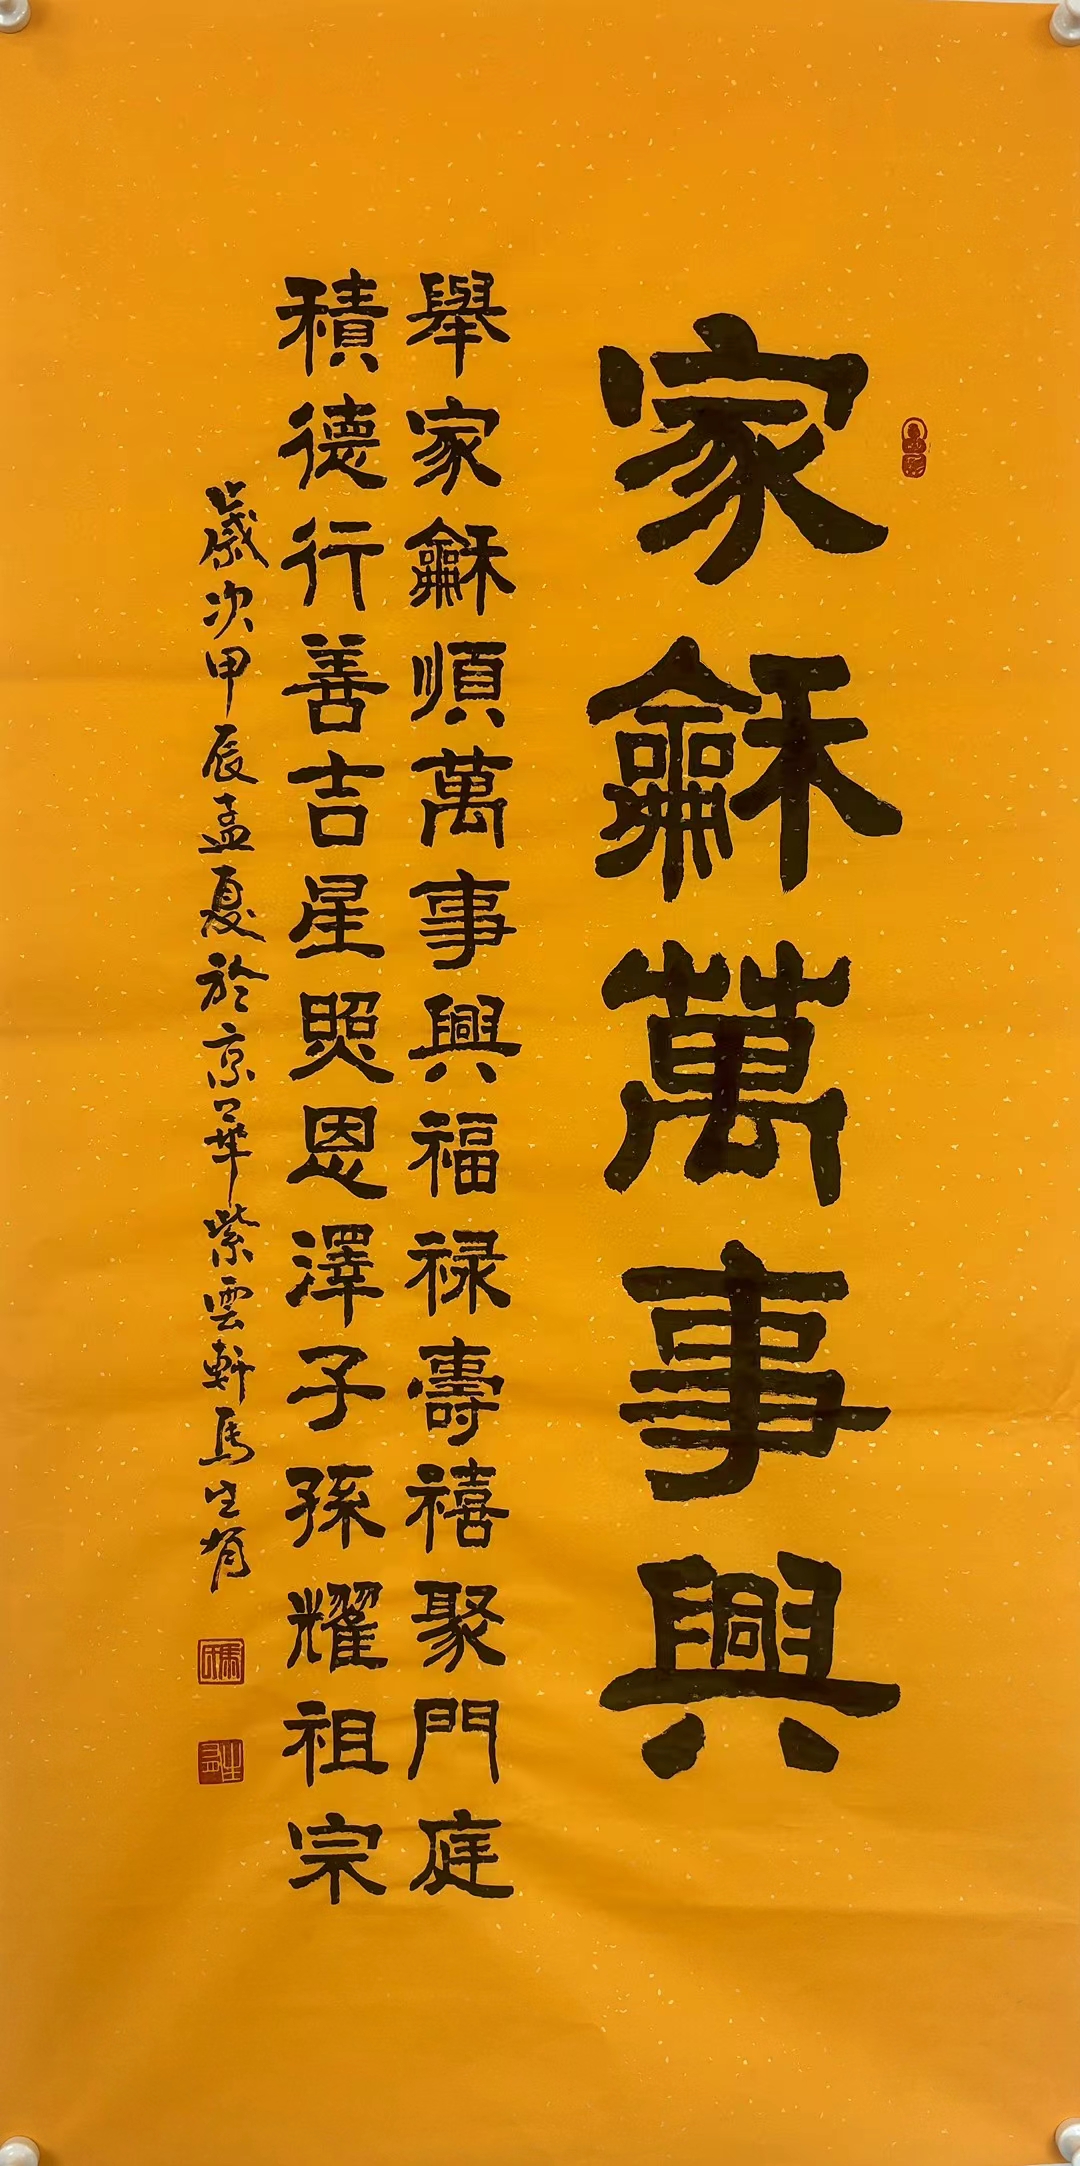 家龢萬事興
舉家龢順萬事興福禄壽禧聚門庭
積德行善吉星照恩澤子孫耀祖宗
歲次甲辰孟夏於京華紫雲軒馬生有